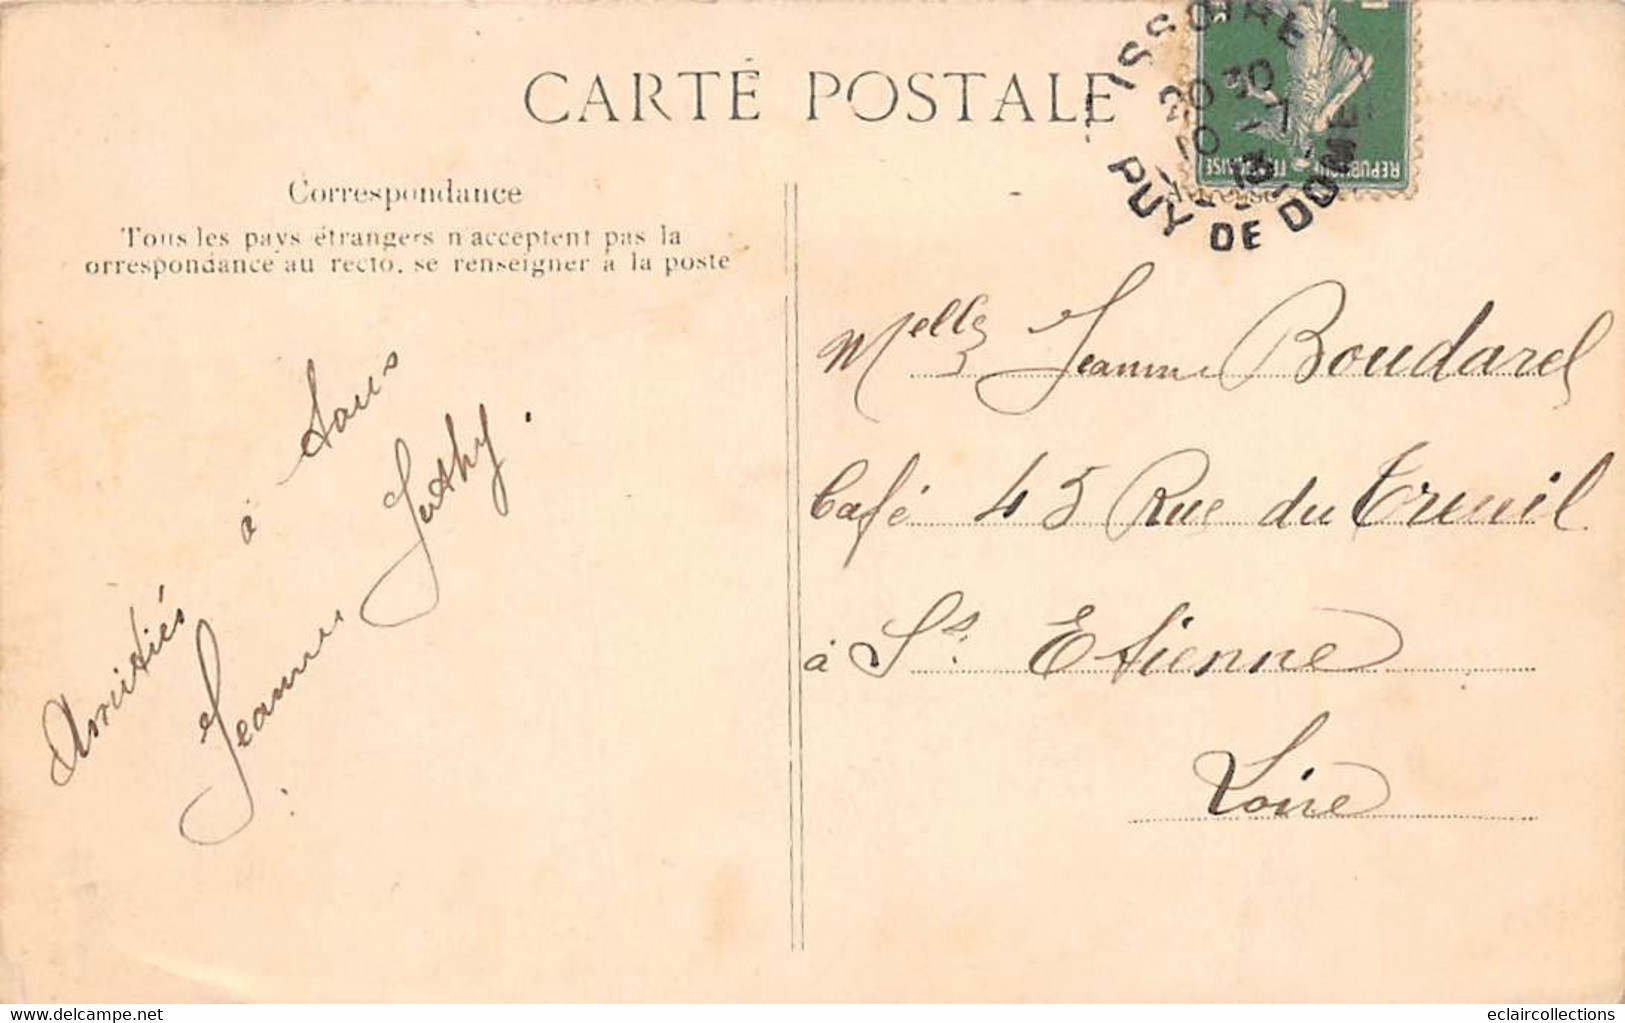 CARTE POSTALE
Correspondance
Tous les pays étrangers n'acceptent pas la
orrespondance au recto, se renseigner à la poste
ISSOIRE
20 30
10 -7
13
PUY DE DOME
REPUBLIQUE FRANÇAISE
Adresse
Melle Jeanne Boudarel
Café 45 Rue du Treuil
à St. Etienne
Loire
Amitiés à tous
Jeanne
www.delcampe.net
eclaircollections